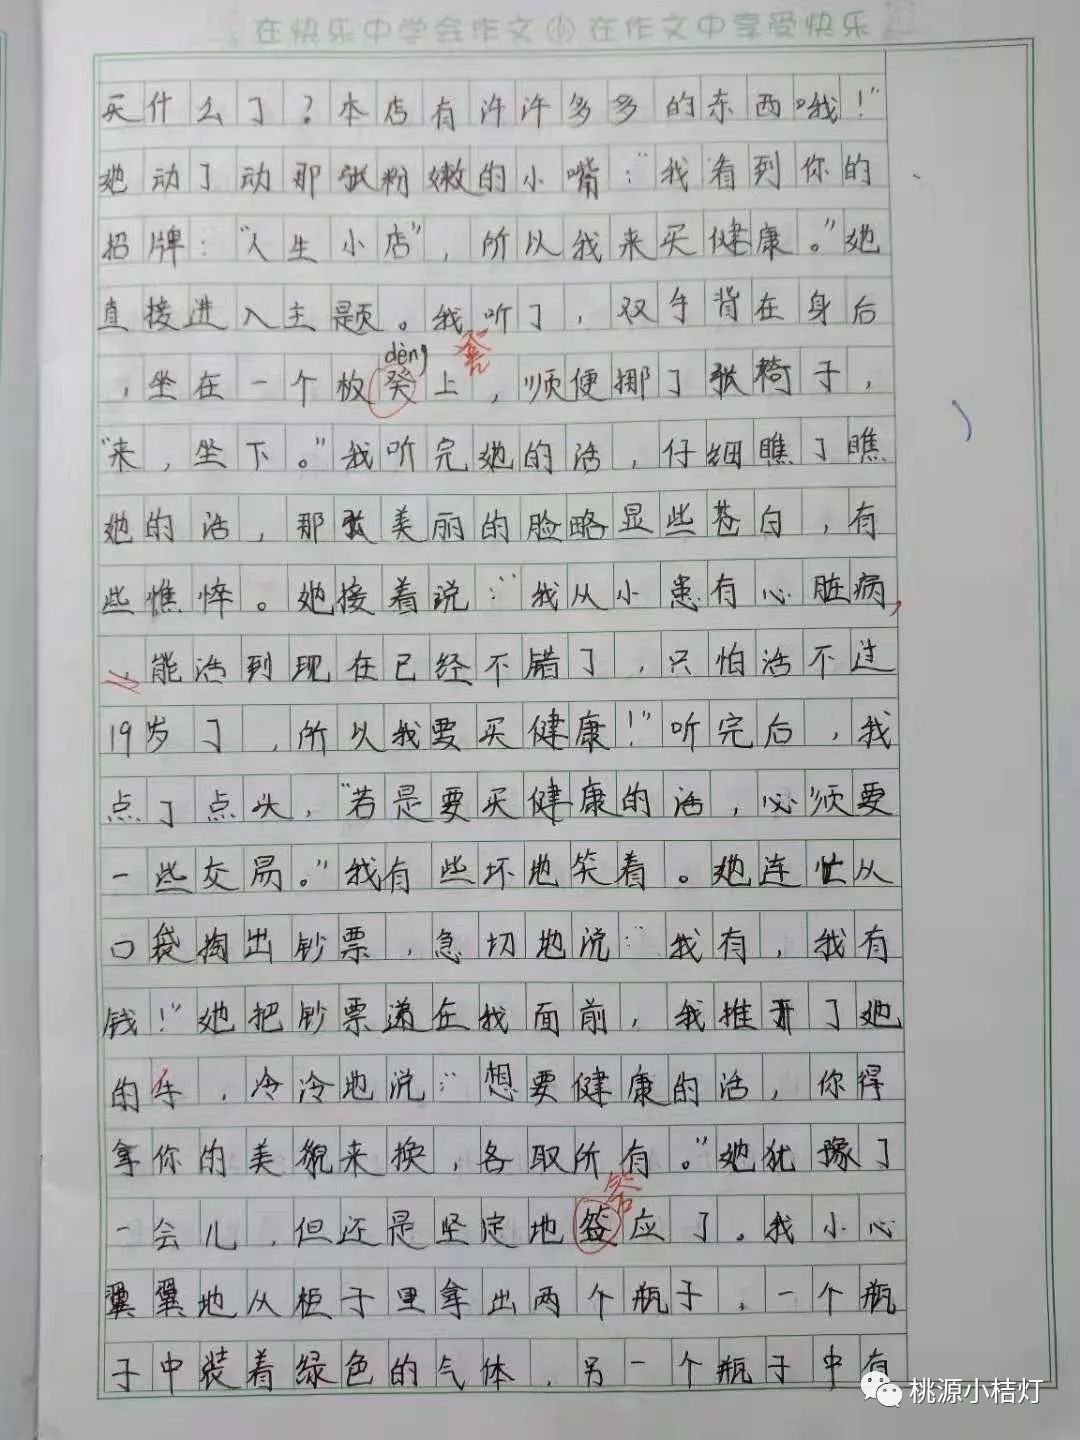 在快乐中学会作文 在作文中享受快乐
买什么了？本店有许许多多的东西哦！”
她动了动那张粉嫩的小嘴：“我看到你的
招牌：“人生小店”，所以我来买健康。”她
直接进入主题。我听了，双手背在身后
dèng 凳
，坐在一个板癸上，顺便挪了张椅子，
“来，坐下。”我听完她的话，仔细瞧了瞧
她的活，那张美丽的脸略显些苍白，有
些憔悴。她接着说：“我从小患有心脏病，
能活到现在已经不错了，只怕活不过
19岁了，所以我要买健康！”听完后，我
点了点头，“若是要买健康的话，必须要
一些交易。”我有些坏地笑着。她连忙从
口袋掏出钞票，急切地说：“我有，我有
钱！”她把钞票递在我面前，我推开了她
的手，冷冷地说：“想要健康的话，你得
拿你的美貌来换，各取所有。”她犹豫了
答
一会儿，但还是坚定地签应了。我小心
翼翼地从柜子里拿出两个瓶子，一个瓶
子中装着绿色的气体，另一个瓶子中有
桃源小桔灯